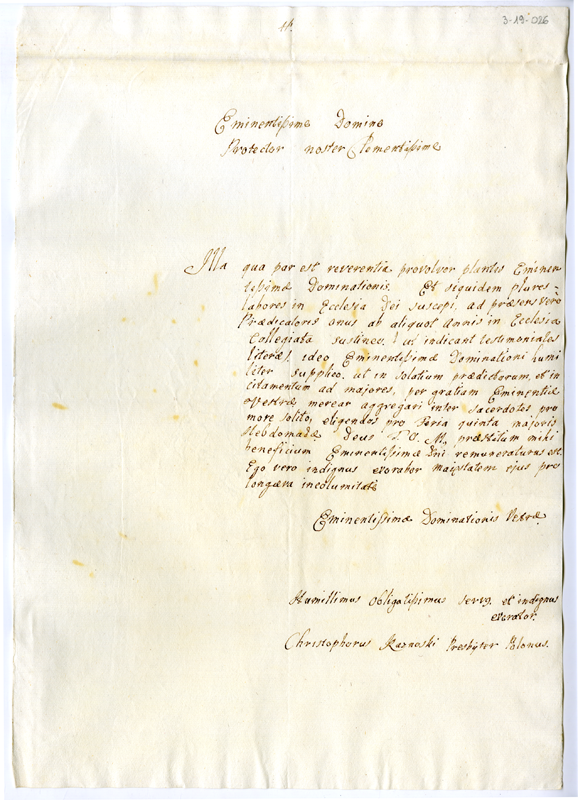 3-19-026
Eminentissime Domine
Protector noster Clementissime
Illa qua par est reverentia provolvor plantis Eminen
tissimæ Dominationis. Et siquidem plures
labores in Ecclesia Dei suscepi, ad præsens vero
Prædicatoris onus ab aliquot Annis in Ecclesia
Collegiata sustineo, ut indicant testimoniales
literæ, ideo Eminentissimæ Dominationi humi
liter supplico, ut in solatium prædictorum, et in
citamentum ad majores, per gratiam Eminentiæ
Vestræ merear aggregari inter Sacerdotes, pro
more solito, eligendos pro Feria quinta majoris
Hebdomadæ Deus T. O. M. præstitum mihi
beneficium Eminentissimæ Dni remuneraturus est.
Ego vero indignus exorator majestatem ejus pro
longæva incolumitate
Eminentissimæ Dominationis Vestræ
Humillimus obligatissimus servus et indignus
exorator.
Christophorus Presbyter Polonus.